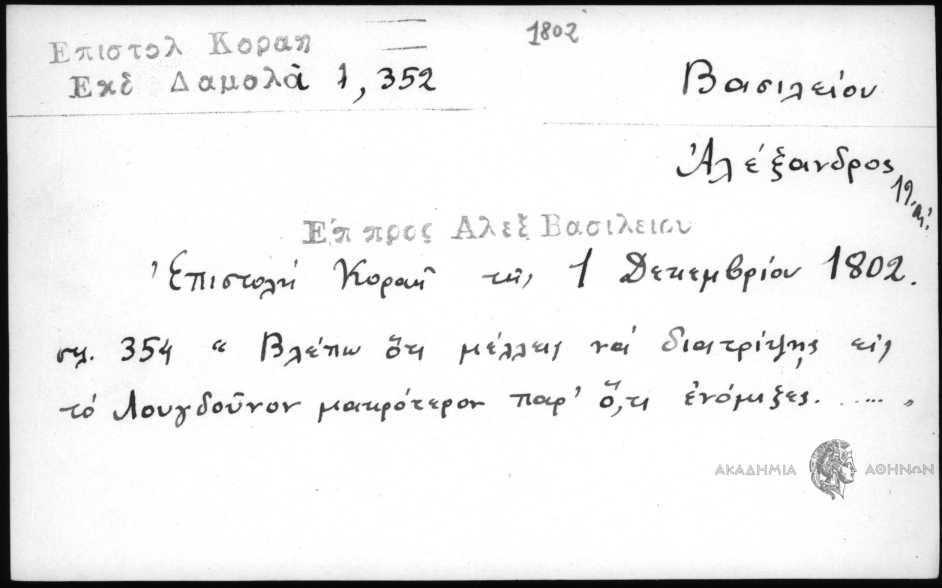 1802
Επιστολ Κοραη
Εκδ Δαμολᾶ 1, 352
Βασιλείου
Ἀλέξανδρος
19. αἰ.
Επ προς Αλεξ Βασιλειου
Ἐπιστολή Κοραῆ τῆς 1 Δεκεμβρίου 1802.
σελ. 354 “ Βλέπω ὅτι μέλλεις νά διατρίψῃς εἰς
τό Λουγδοῦνον μακρότερον παρ' ὅ,τι ἐνόμιζες. ..... „
ΑΚΑΔΗΜΙΑ ΑΘΗΝΩΝ